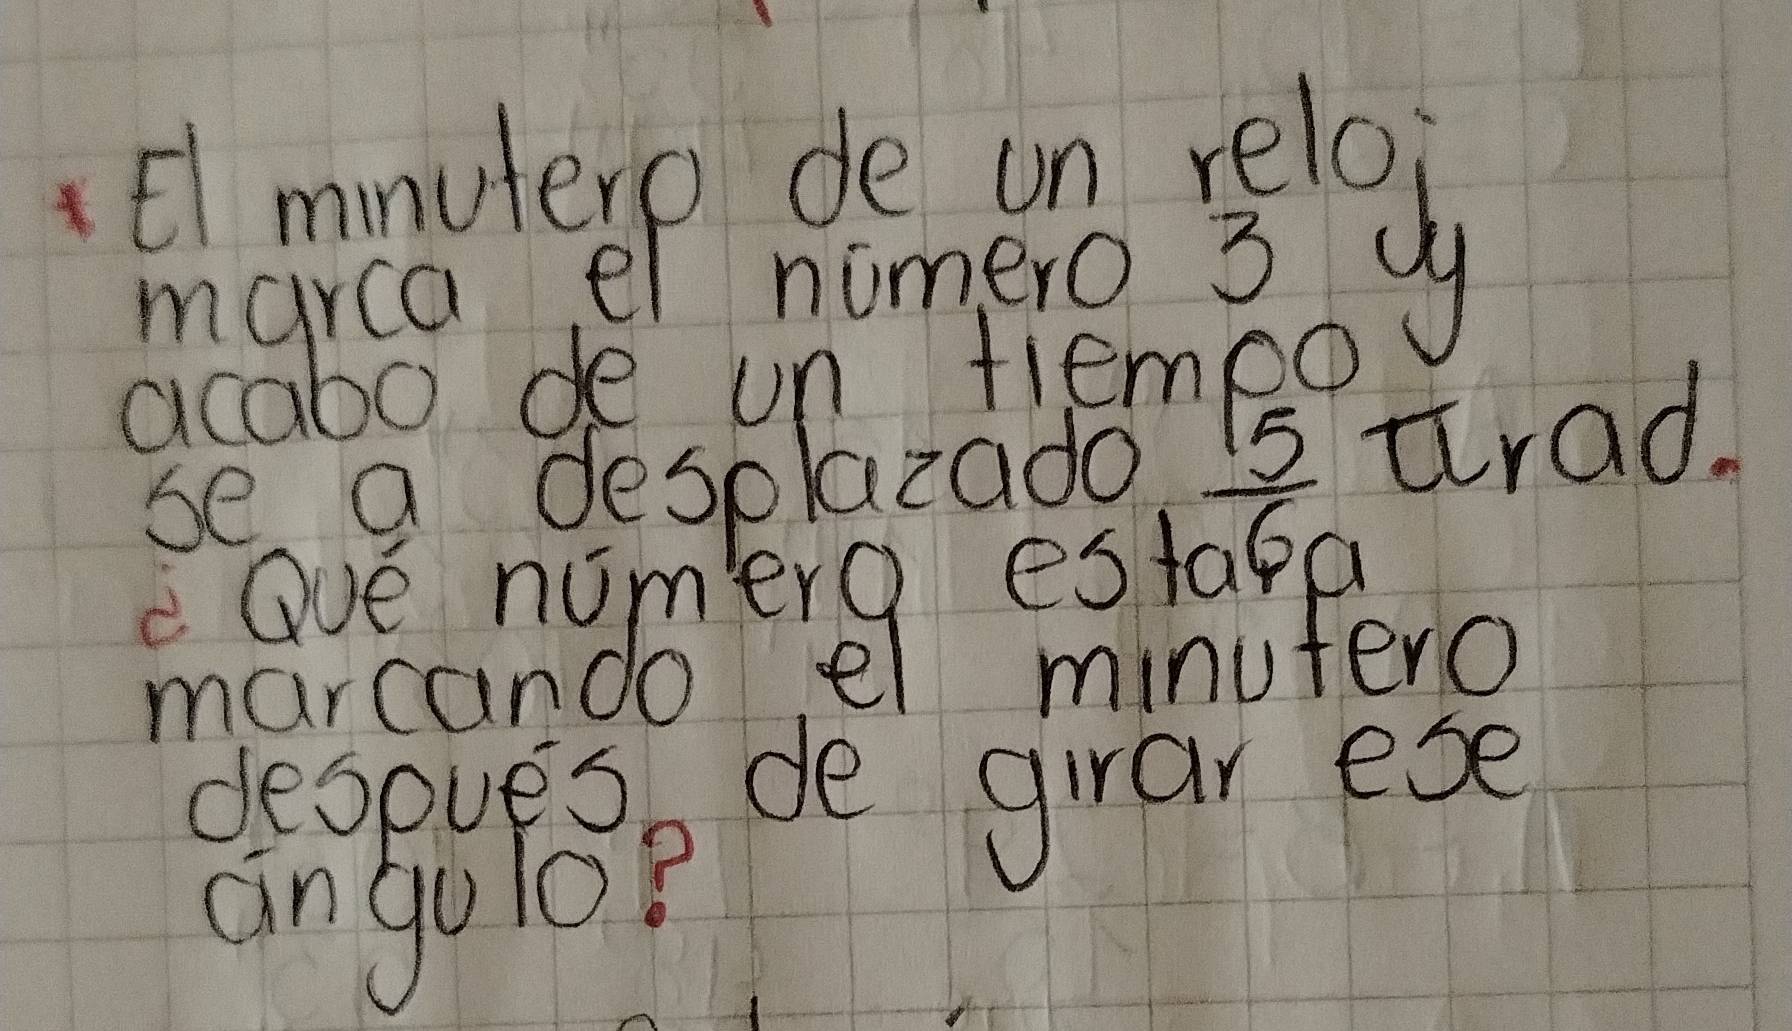 El minutero de un reloj
marca el número 3 y
acabo de un tiempo
se a desplazado 5/6 π rad.
¿Qué número estaba
marcando el minutero
después de girar ese
ángulo?